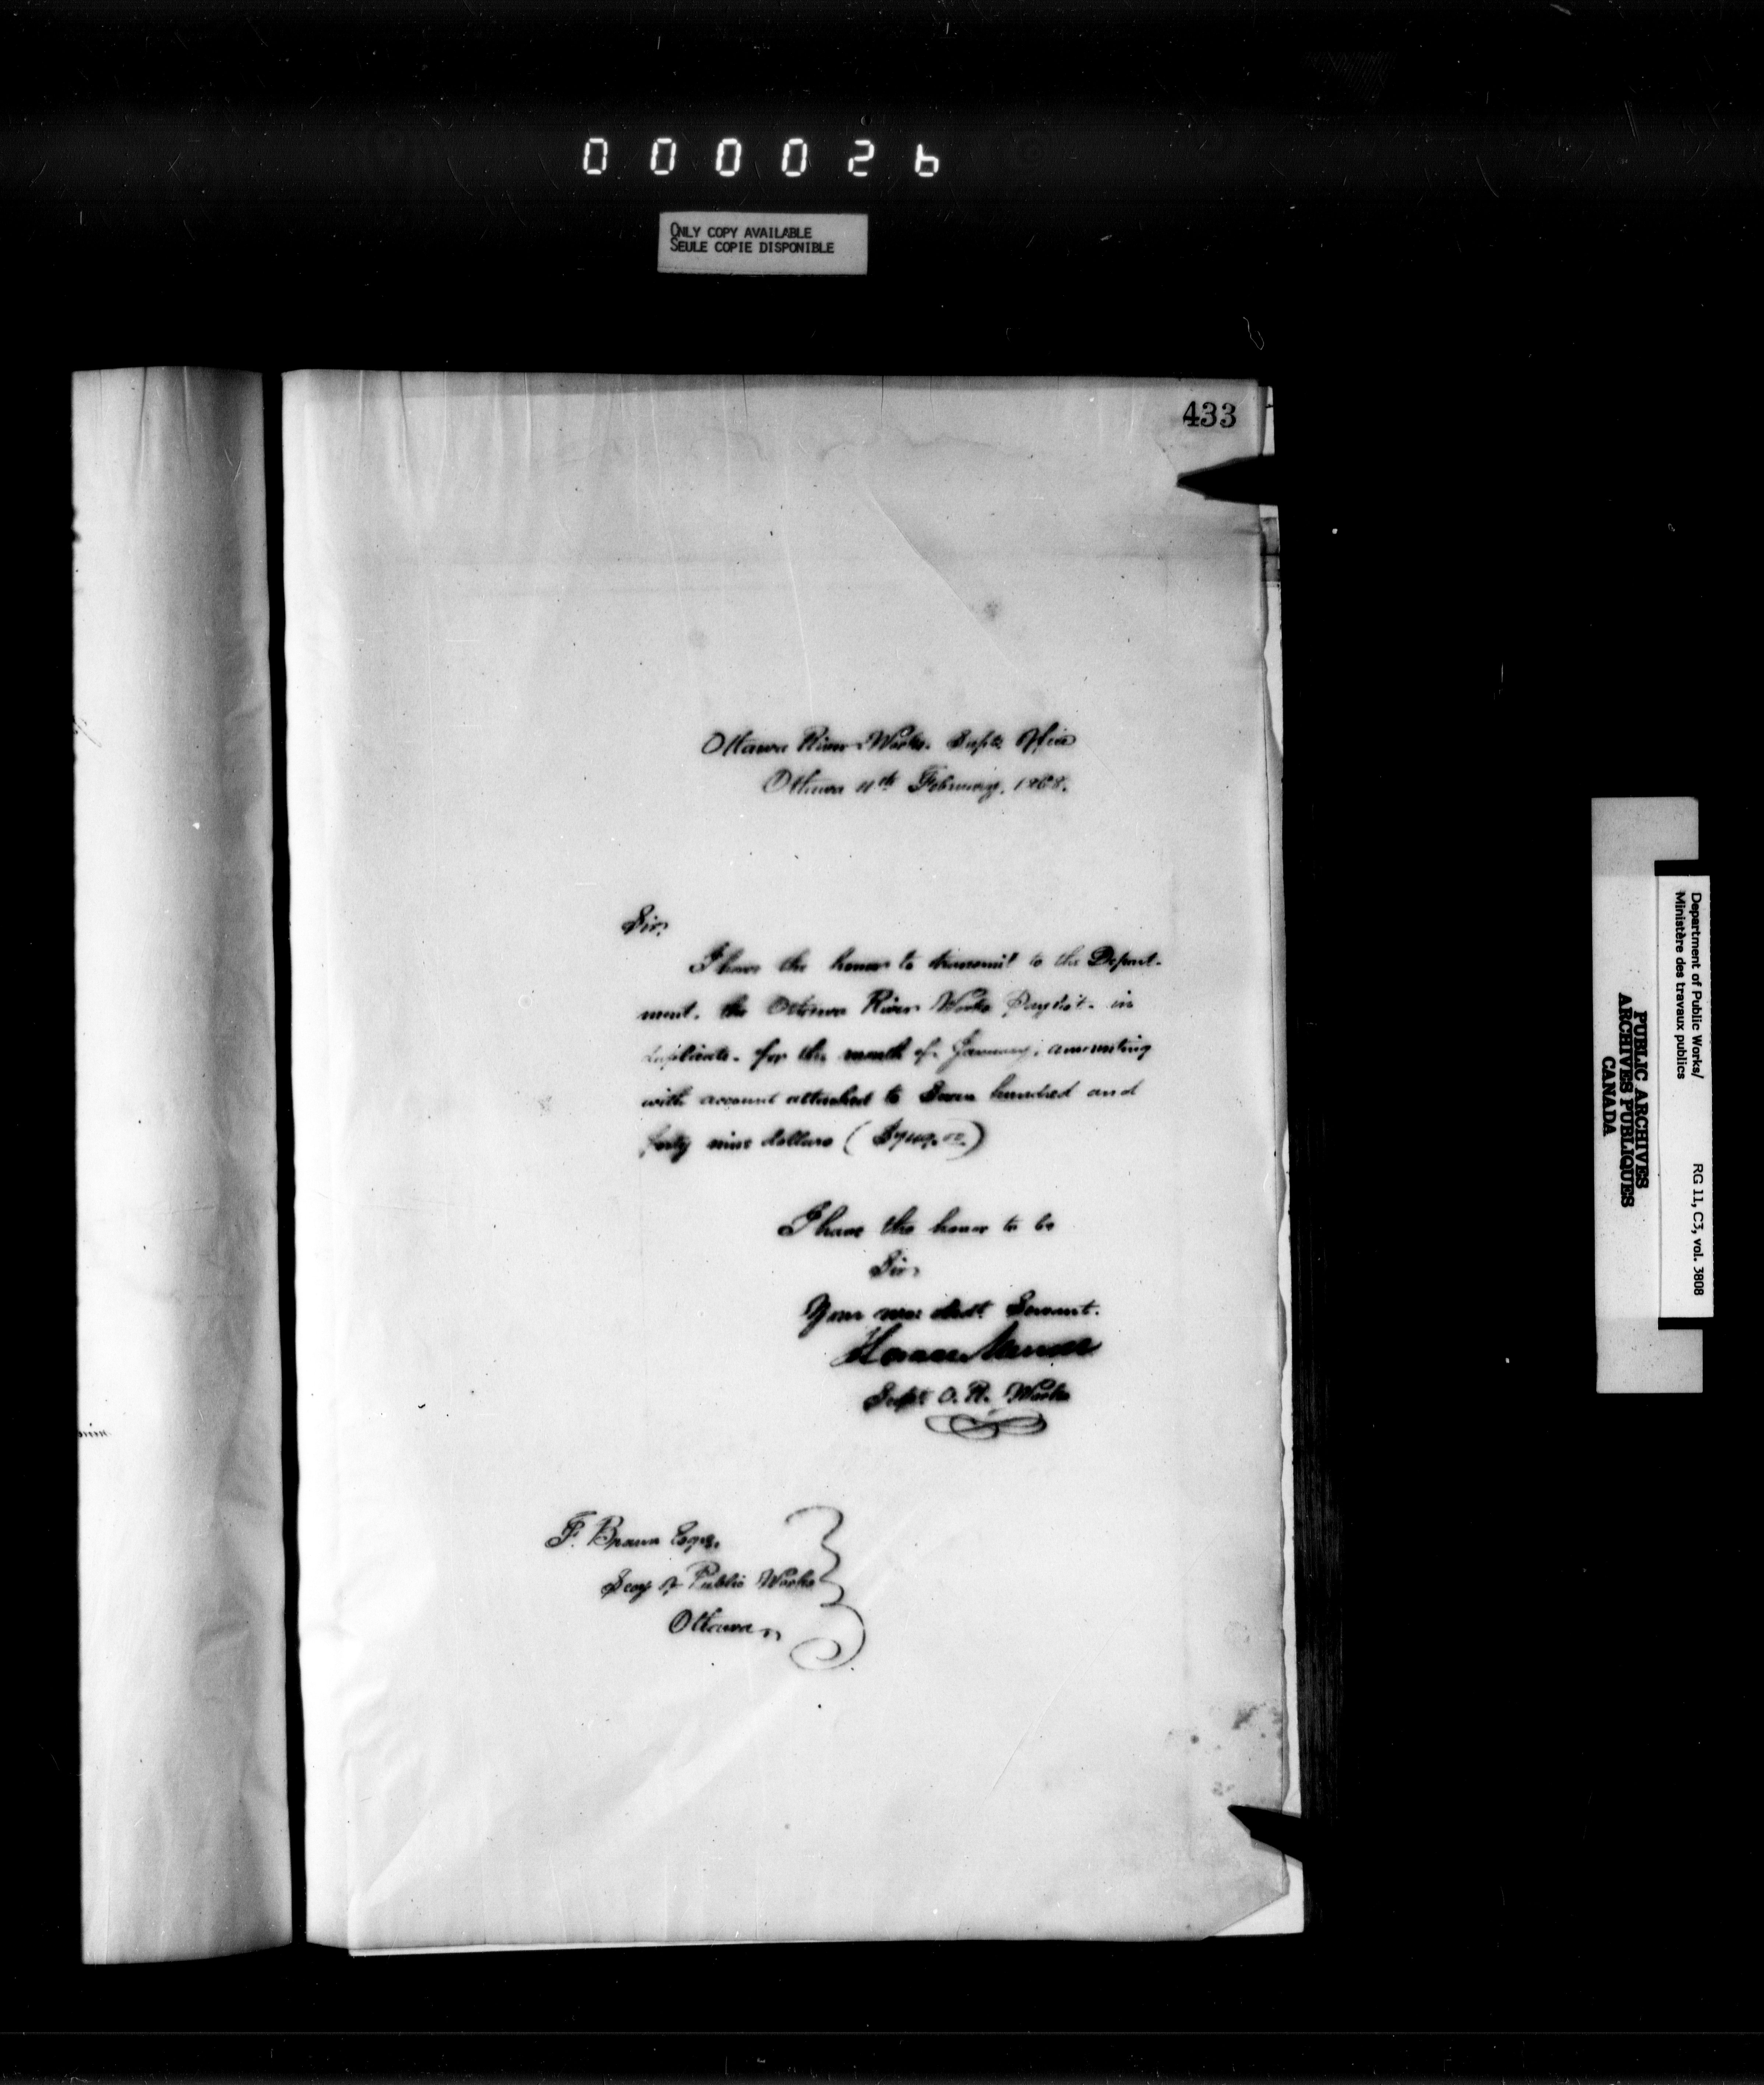 000026
ONLY COPY AVAILABLE
SEULE COPIE DISPONIBLE
433
Ottawa River Works. Supts. Office
Ottawa 11th February, 1868.
Sir,
I have the honor to transmit to the Depart-
ment, the Ottawa River Works Paylist - in
duplicate - for the month of January, amounting
with account attached to Seven hundred and
forty nine dollars ($749.00)
I have the honor to be
Sir,
Your most obedt. Servant.
Horace Merrill
Supt. O. R. Works
F. Braun Esqre.
Secy. of Public Works
Ottawa,
Department of Public Works/
Ministère des travaux publics
RG 11, C3, vol. 3808
PUBLIC ARCHIVES
ARCHIVES PUBLIQUES
CANADA